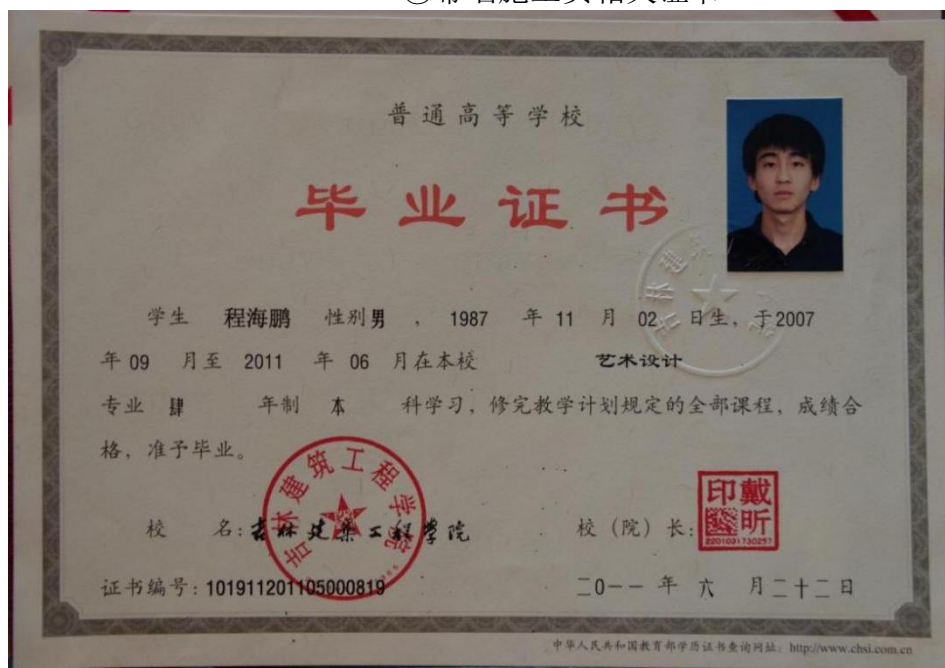 普通高等学校
毕业证书
学生 程海鹏 性别 男 , 1987 年 11 月 02 日生, 于2007
年 09 月至 2011 年 06 月在本校 艺术设计
专业 肆 年制 本 科学习, 修完教学计划规定的全部课程, 成绩合
格, 准予毕业。
吉林建筑工程学院
校 名: 吉林建筑工程学院
校 (院) 长:
戴昕印
2201031730257
证书编号: 101911201105000819
二0一一 年 六 月二十二日
中华人民共和国教育部学历证书查询网址: http://www.chsi.com.cn